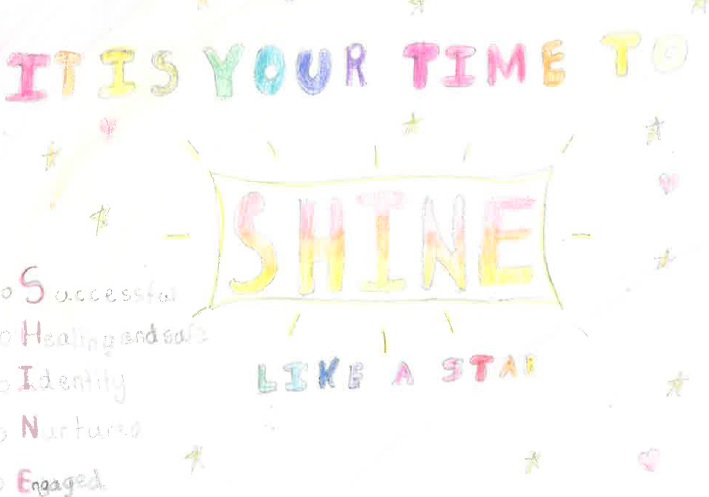 IT IS YOUR TIME TO
SHINE
LIKE A STAR
Successful
Healing and safe
Identity
Nurtured
Engaged